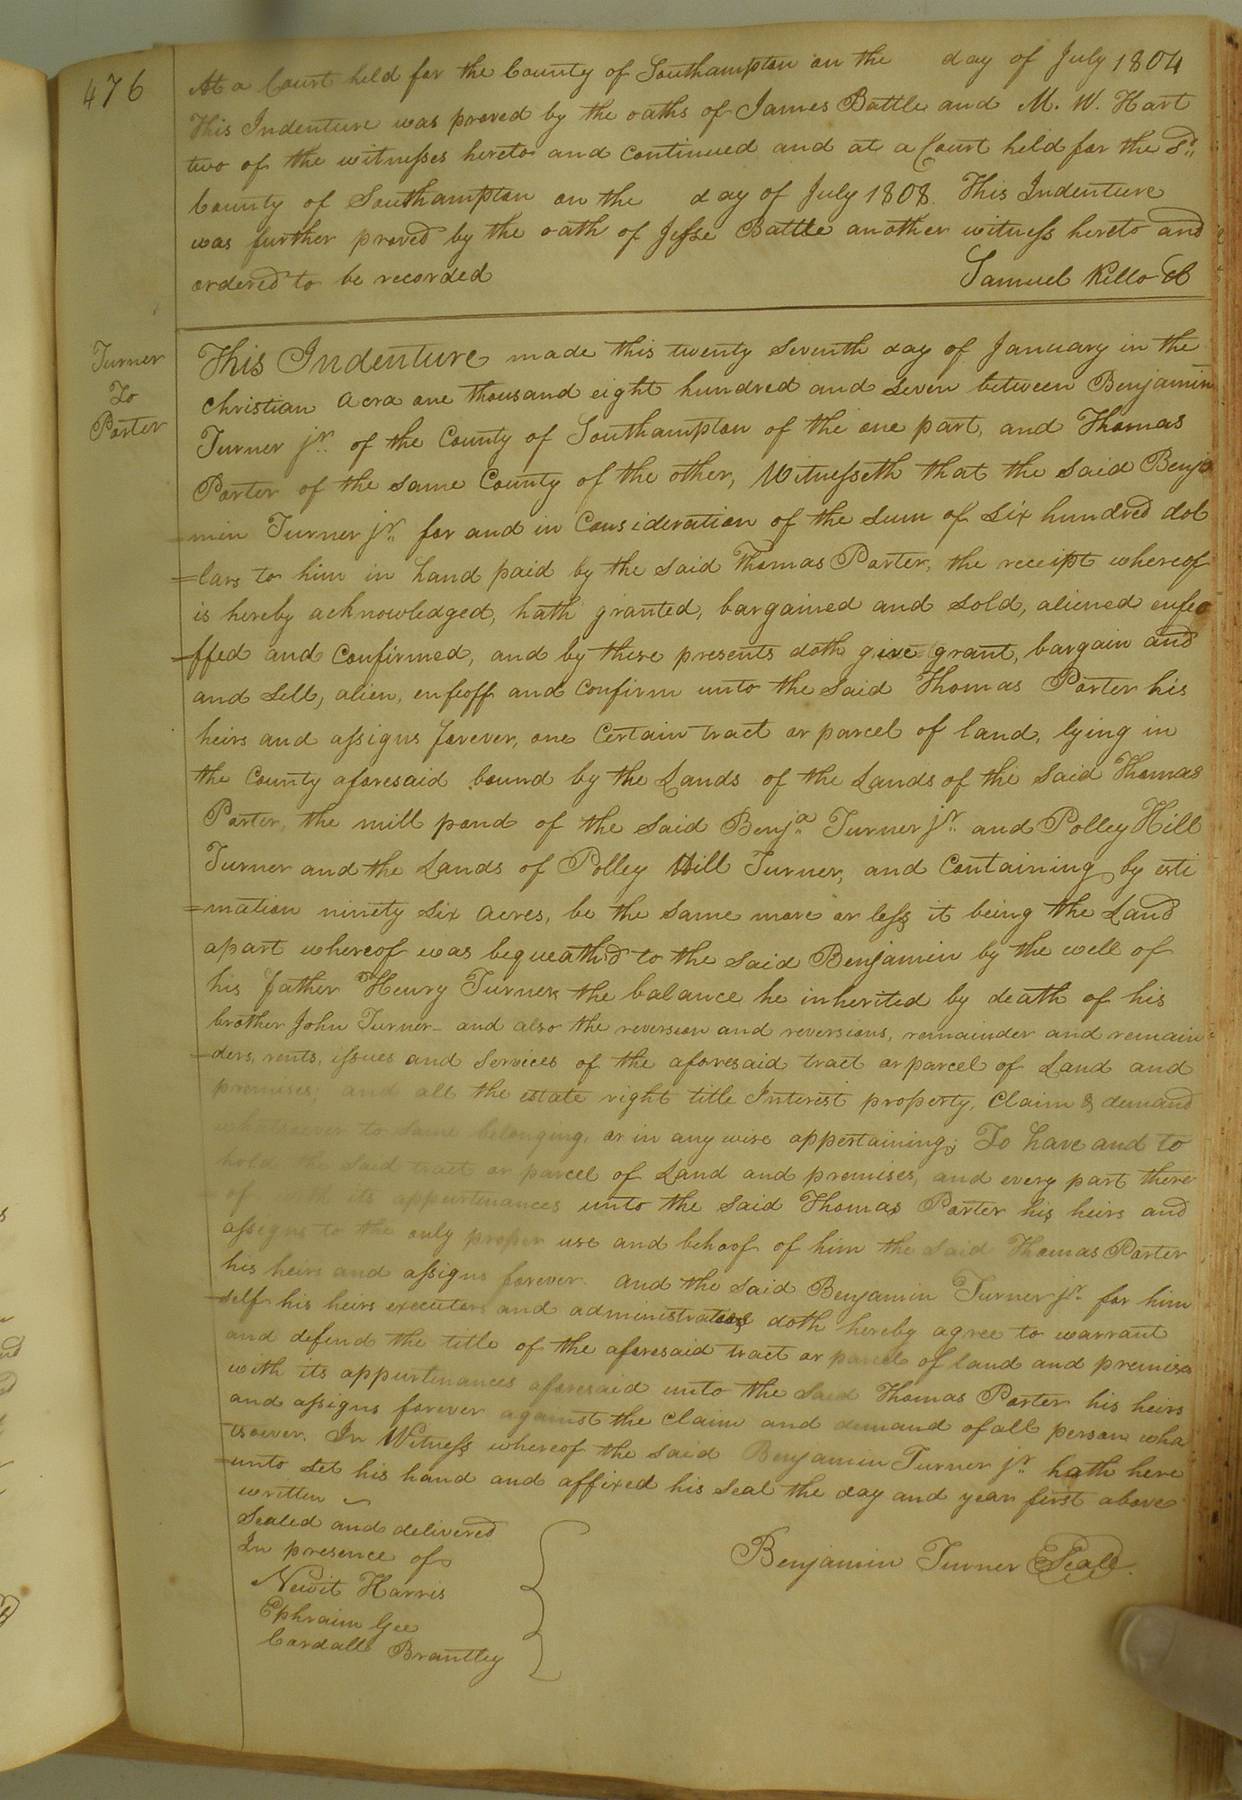 476
At a Court held for the County of Southampton on the day of July 1804
This Indenture was proved by the oaths of James Battle and M. W. Hart
two of the witnesses hereto and continued and at a Court held for the Sd.
County of Southampton on the day of July 1808. This Indenture
was further proved by the oath of Jesse Battle another witness hereto and
ordered to be recorded
Samuel Kello CC
Turner
To
Porter
This Indenture made this twenty seventh day of January in the
christian Aera one thousand eight hundred and seven between Benjamin
Turner jr. of the County of Southampton of the one part, and Thomas
Porter of the same County of the other, Witnesseth that the said Benja
=min Turner jr. for and in consideration of the sum of six hundred dol
=lars to him in hand paid by the said Thomas Porter, the receipt whereof
is hereby acknowledged, hath granted, bargained and sold, aliened enfeo
=ffed and confirmed, and by these presents doth give grant, bargain and
and sell, alien, enfeoff and confirm unto the said Thomas Porter his
heirs and assigns forever, one certain tract or parcel of land, lying in
the County aforesaid bound by the Lands of the Lands of the said Thomas
Porter, the mill pond of the said Benja. Turner jr. and Polley Hill
Turner and the Lands of Polley Hill Turner, and containing by esti
=mation ninety six acres, be the same more or less it being the Land
apart whereof was bequeath'd to the said Benjamin by the well of
his father Henry Turner the balance he inherited by death of his
brother John Turner- and also the reversion and reversions, remainder and remain=
=ders, rents, issues and services of the aforesaid tract or parcel of Land and
premises; and all the estate right title Interest property, claim & demand
whatsoever to same belonging, or in any wise appertaining; To have and to
hold the said tract or parcel of Land and premises, and every part there
of with its appurtinances unto the said Thomas Porter his heirs and
assigns to the only proper use and behoof of him the said Thomas Porter
his heirs and assigns forever. And the said Benjamin Turner jr. for him
=self his heirs executors and administrators doth hereby agree to warrant
and defend the title of the aforesaid tract or parcel of land and premises
with its appurtinances aforesaid unto the said Thomas Porter his heirs
and assigns forever against the claim and demand of all person wha
=tsoever. In Witness whereof the said Benjamin Turner jr. hath here
=unto set his hand and affixed his seal the day and year first above
written
Sealed and delivered
In presence of
Newit Harris
Ephraim Gee
Cordall Brantley
Benjamin Turner Seal